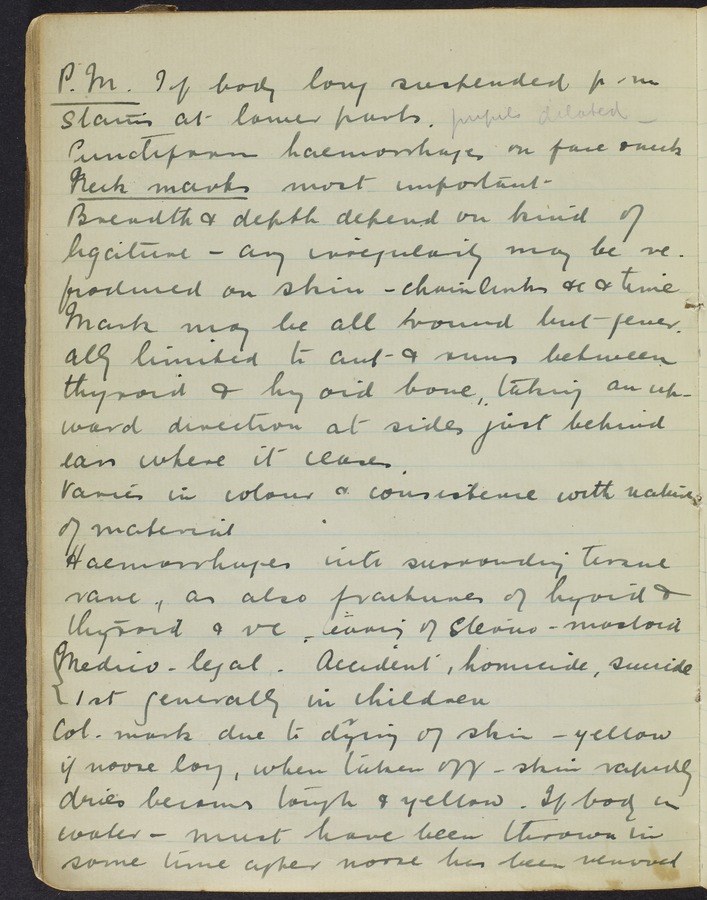 P.M. If body long suspended p.m
stains at lower parts. pupils dilated -
Punctiform haemorrhages on face & neck
Neck marks most important -
Breadth & depth depend on kind of
ligature - any irregularity may be re-
produced on skin - chain links &c & time
Mark may be all round but gener-
ally limited to ant. & runs between
thyroid & hyoid bone, taking an up-
ward direction at sides just behind
ears where it ceases.
Varies in colour & consistence with nature
of material
Haemorrhages into surrounding tissue
rare, as also fractures of hyoid &
thyroid & tearing of Sterno-mastoid
Medico-legal. Accident, homicide, suicide
1st generally in children
Col. mark due to drying of skin - yellow
if noose long, when taken off - skin rapidly
dries becomes tough & yellow. If body in
water - must have been thrown in
some time after noose has been removed